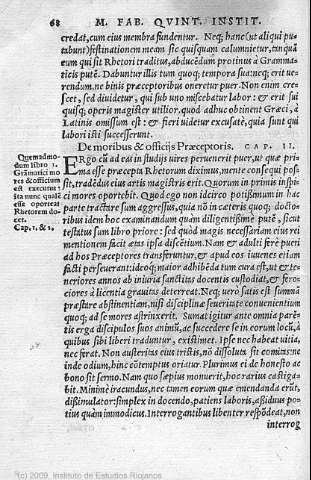 68 M. FAB. QVINT. INSTIT.
credat, cum eius membra fundentur. Nec hanc (ut aliqui pu-
tabunt) festinationem meam sic quisquam calumnietur, tanquã
eum qui sit Rhetori traditus, abducẽdum protinus à Gramma-
ticis putẽ. Dabuntur illis tum quoq; tempora sua: neq; erit ue-
rendum, ne binis præceptoribus oneretur puer. Non enim cres-
cet, sed diuidetur, qui sub uno miscebatur labor: & erit sui
quisq; operis magister utilior. quod adhuc obtinent Græci, à
Latinis omissum est: & fieri uidetur excusatè, quia sunt qui
labori isti successerunt.
De moribus & officijs Præceptoris. CAP. II.
Quemadmo-
dum libro 1.
Grãmatici mo
res & officium
est executus:
ita nunc quale
esse oporteat
Rhetorem do-
cet.
Cap. 1. & 2.
ERgo cũ ad eas in studijs uires peruenerit puer, ut quæ pri-
ma esse præcepta Rhetorum diximus, mente consequi pos-
sit, tradẽdus eius artis magistris erit. Quorum in primis inspi-
ci mores oportebit. Quod ego non idcirco potissimum in hac
parte tractare sum aggressus, quia nõ in cæteris quoq; docto-
ribus idem hoc examinandum quàm diligentissimè putẽ, sicut
testatus sum libro priore: sed quòd magis necessariam eius rei
mentionem facit ætas ipsa discẽtium. Nam & adulti ferè pueri
ad hos Præceptores transferuntur, & apud eos iuuenes etiam
facti perseuerant: ideoq; maior adhibẽda tum cura est, ut & te-
neriores annos ab iniuria sanctitas docentis custodiat, & fero-
ciores à licentia grauitas deterreat. Neq; uerò satis est summã
præstare abstinentiam, nisi disciplinæ seueritate conuenientium
quoq; ad se mores astrinxerit. Sumat igitur ante omnia parẽ-
tis erga discipulos suos animũ, ac succedere se in eorum locũ, à
quibus sibi liberi traduntur, existimet. Ipse nec habeat uitia,
nec ferat. Non austeritas eius tristis, nõ dissoluta sit comitas: ne
inde odium, hinc cõtemptus oriatur. Plurimus ei de honesto ac
bono sit sermo. Nam quo sæpius monuerit, hoc rarius castiga-
bit. Minimè iracundus, nec tamen eorum quæ emendanda erũt,
dissimulator: simplex in docendo, patiens laboris, assiduus po-
tius quàm immodicus. Interrogantibus libenter respõdeat, non
interrog
(c) 2009, Instituto de Estudios Riojanos